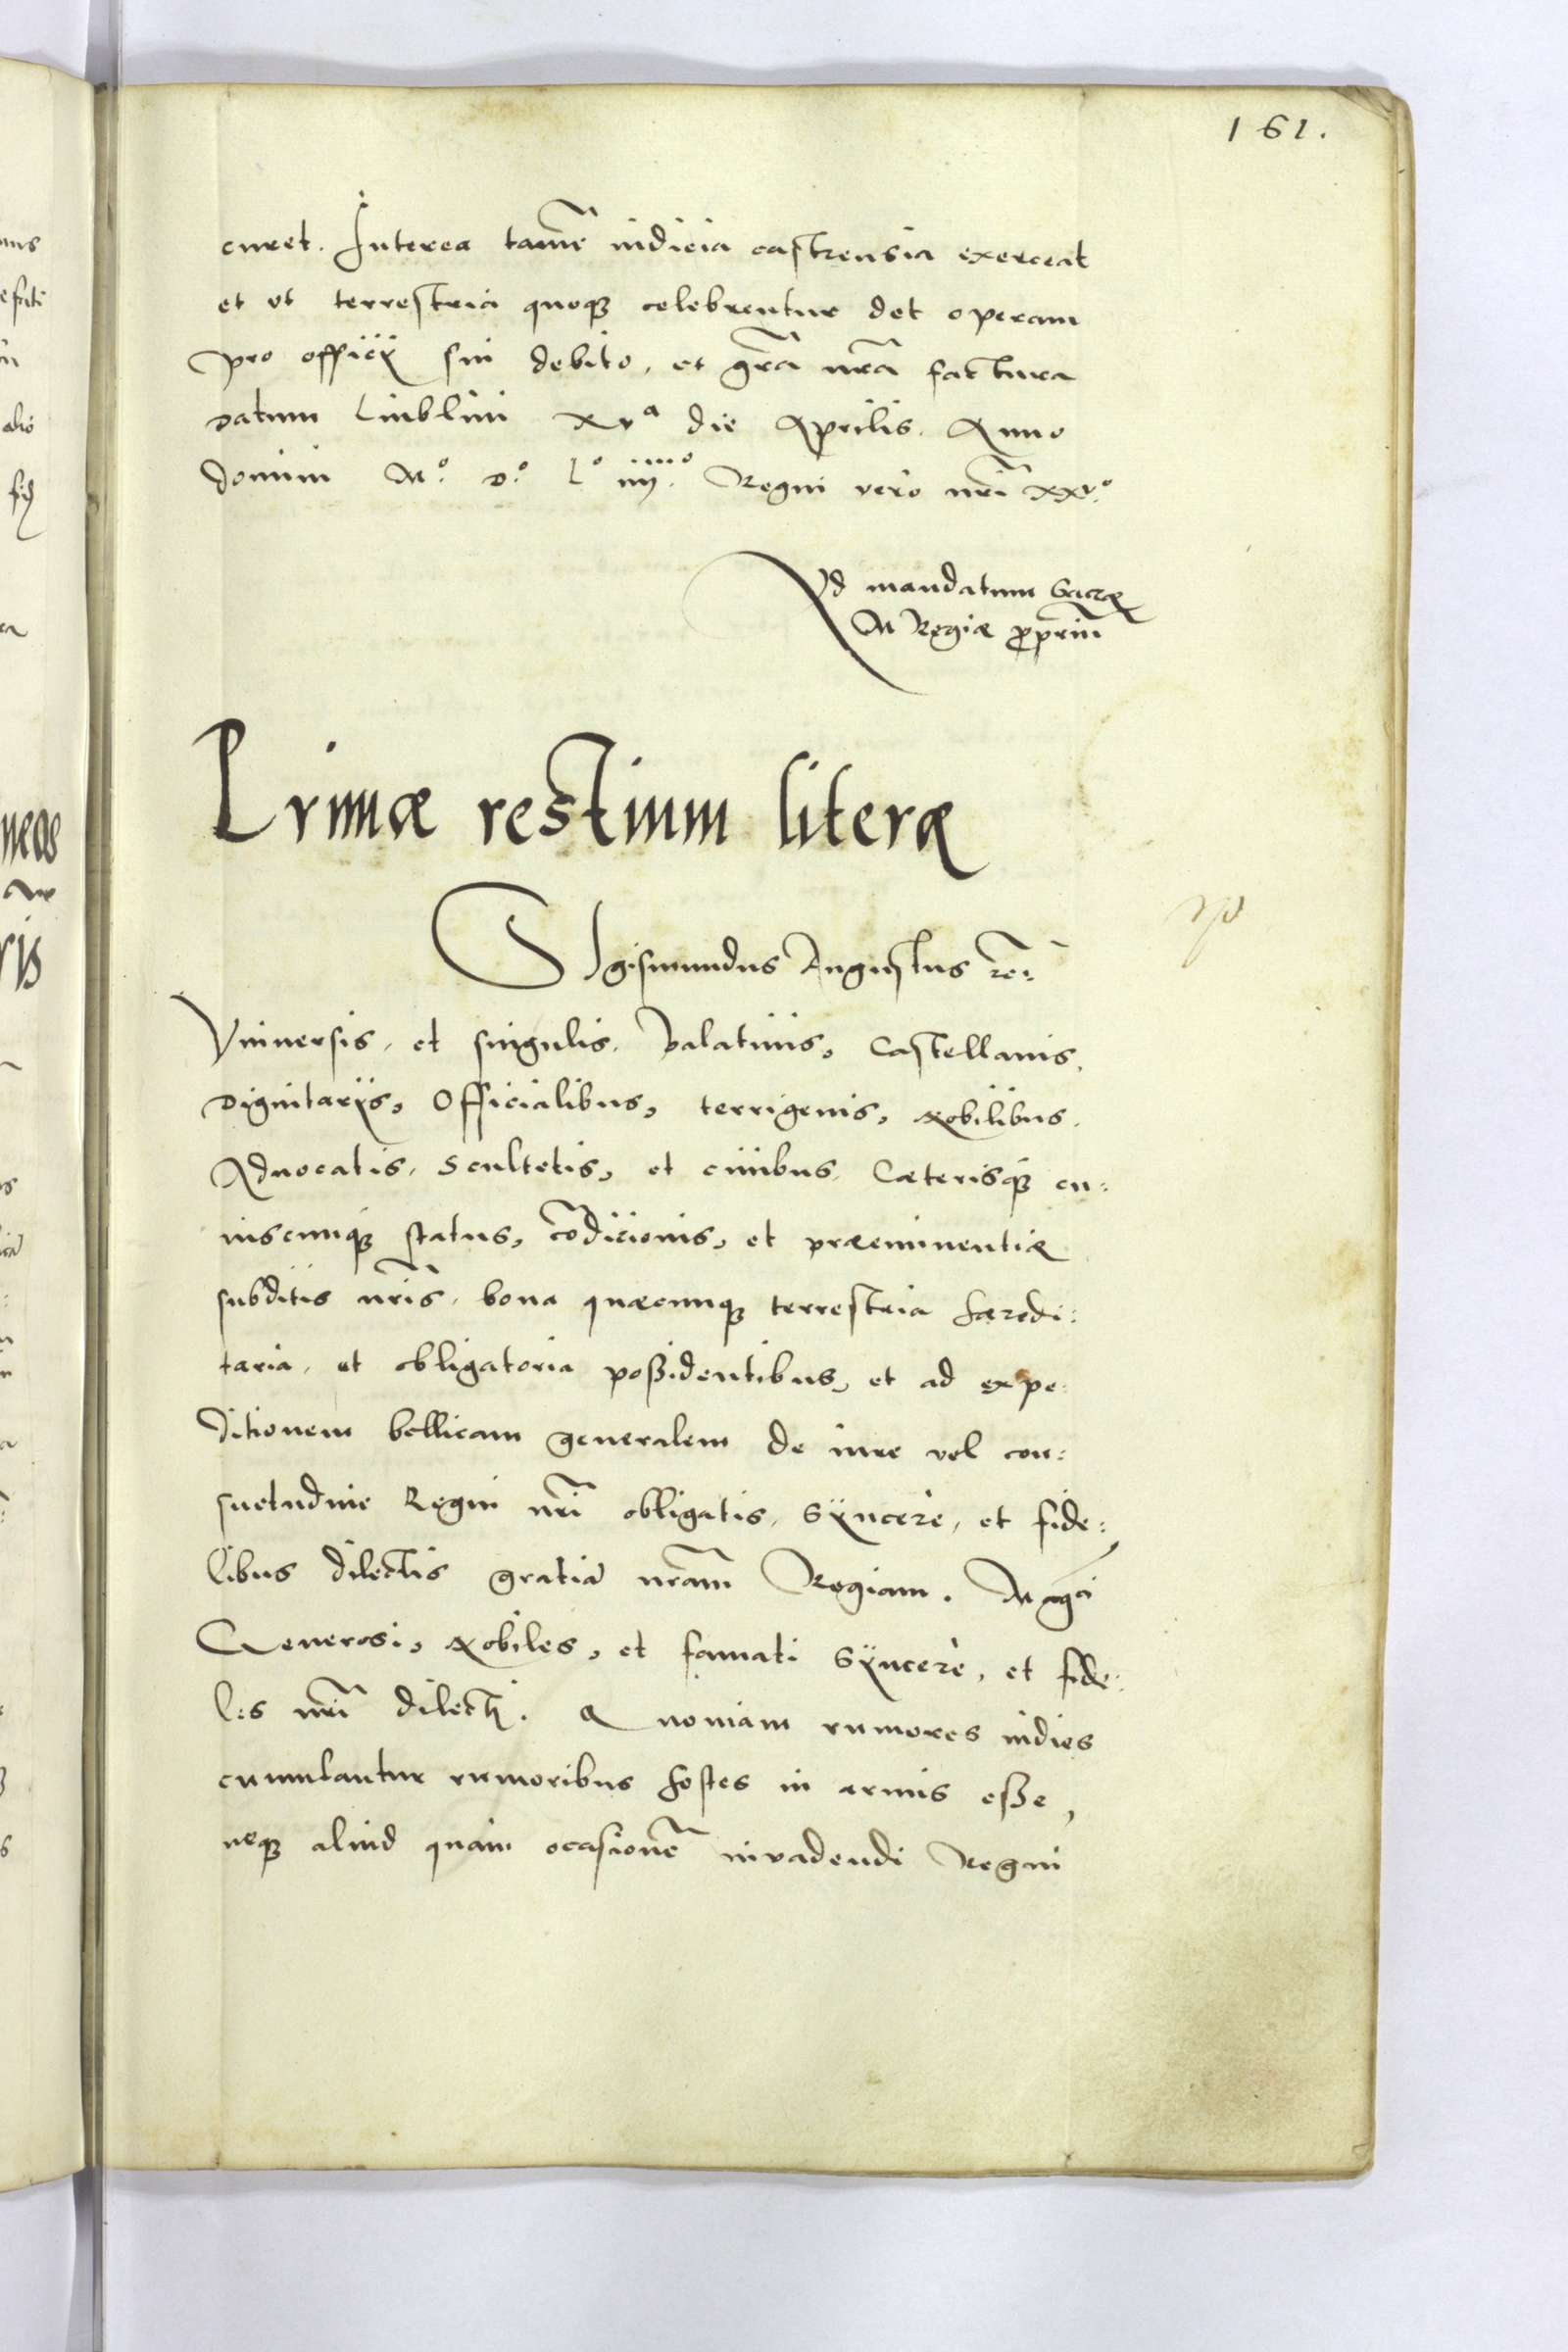 161.
curet. Interea tamē iudicia castrensia exerceat
et ut terrestria quoqꝫ celebrentur det operam
pro officij sui debito, et grā̃ nrā̃ factura
Datum Liublini xvᵃ die Aprilis. Anno
domini Mº. Dº. Lº iiijº. Regni vero nrī xxvº.
Ad mandatum Sacræ
M Regiæ ꝓprium
Primæ restium literæ
SIgismundus Augustus rē:
Vniuersis, et singulis, Palatinis, Castellanis,
Dignitarijs, Officialibus, terrigenis, Nobilibus,
Aduocatis, Scultetis, et ciuibus, Cæterisqꝫ cu:
iuscunqꝫ status, cōdicionis, et præeminentiæ
subditis nrīs, bona quæcunqꝫ terrestria hæredi:
taria, et obligatoria possidentibus, et ad expe:
ditionem bellicam generalem de iure vel con:
suetudine Regni nrī obligatis, Syncerè, et fide:
libus dilectis gratiā nrām Regiam. Mgci
Generosi, Nobiles, et famati Syncerè, et fide:
les nrī dilecti. Quoniam rumores indies
cumulantur rumoribus hostes in armis esse,
neqꝫ aliud quàm ocasionē inuadendi Regni